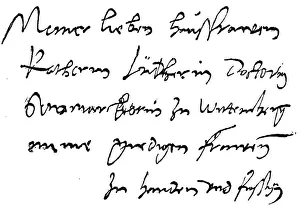 Meiner lieben hausfrawen
Katherin Lutherin Doctorin
Sewmarckterin zu Wittemberg
meine gnedigen frawen
zu handen und fussen